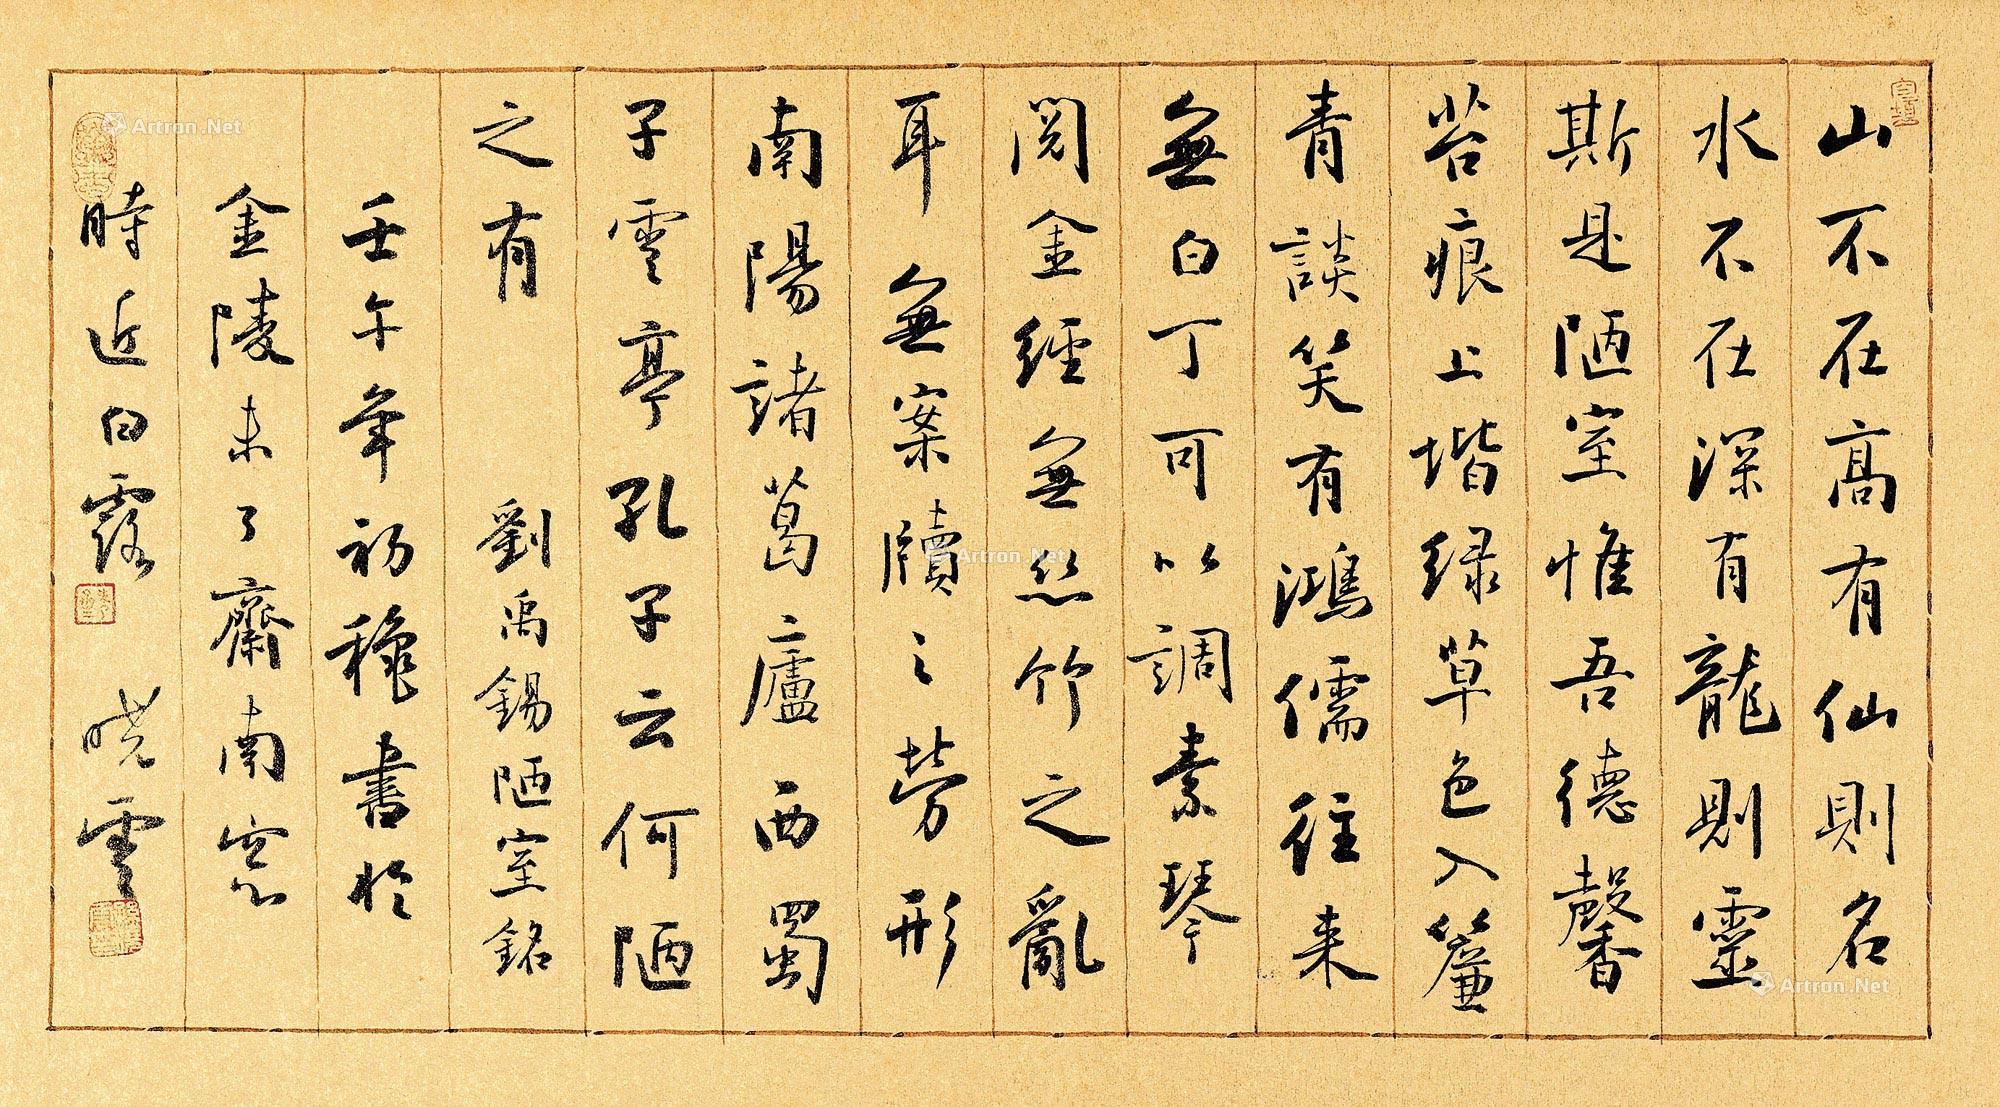 山不在高有仙則名
水不在深有龍則靈
斯是陋室惟吾德馨
苔痕上堦緑草色入簾
青談笑有鴻儒往来
無白丁可以調素琴
閲金經無丝竹之亂
耳無案牘之劳形
南陽諸葛廬西蜀
子雲亭孔子云何陋
之有
劉禹錫陋室銘
壬午年初穐書於
金陵未了齋南窓
時近白露
晓雲
Artron.Net
Artron.Net
Artron.Net